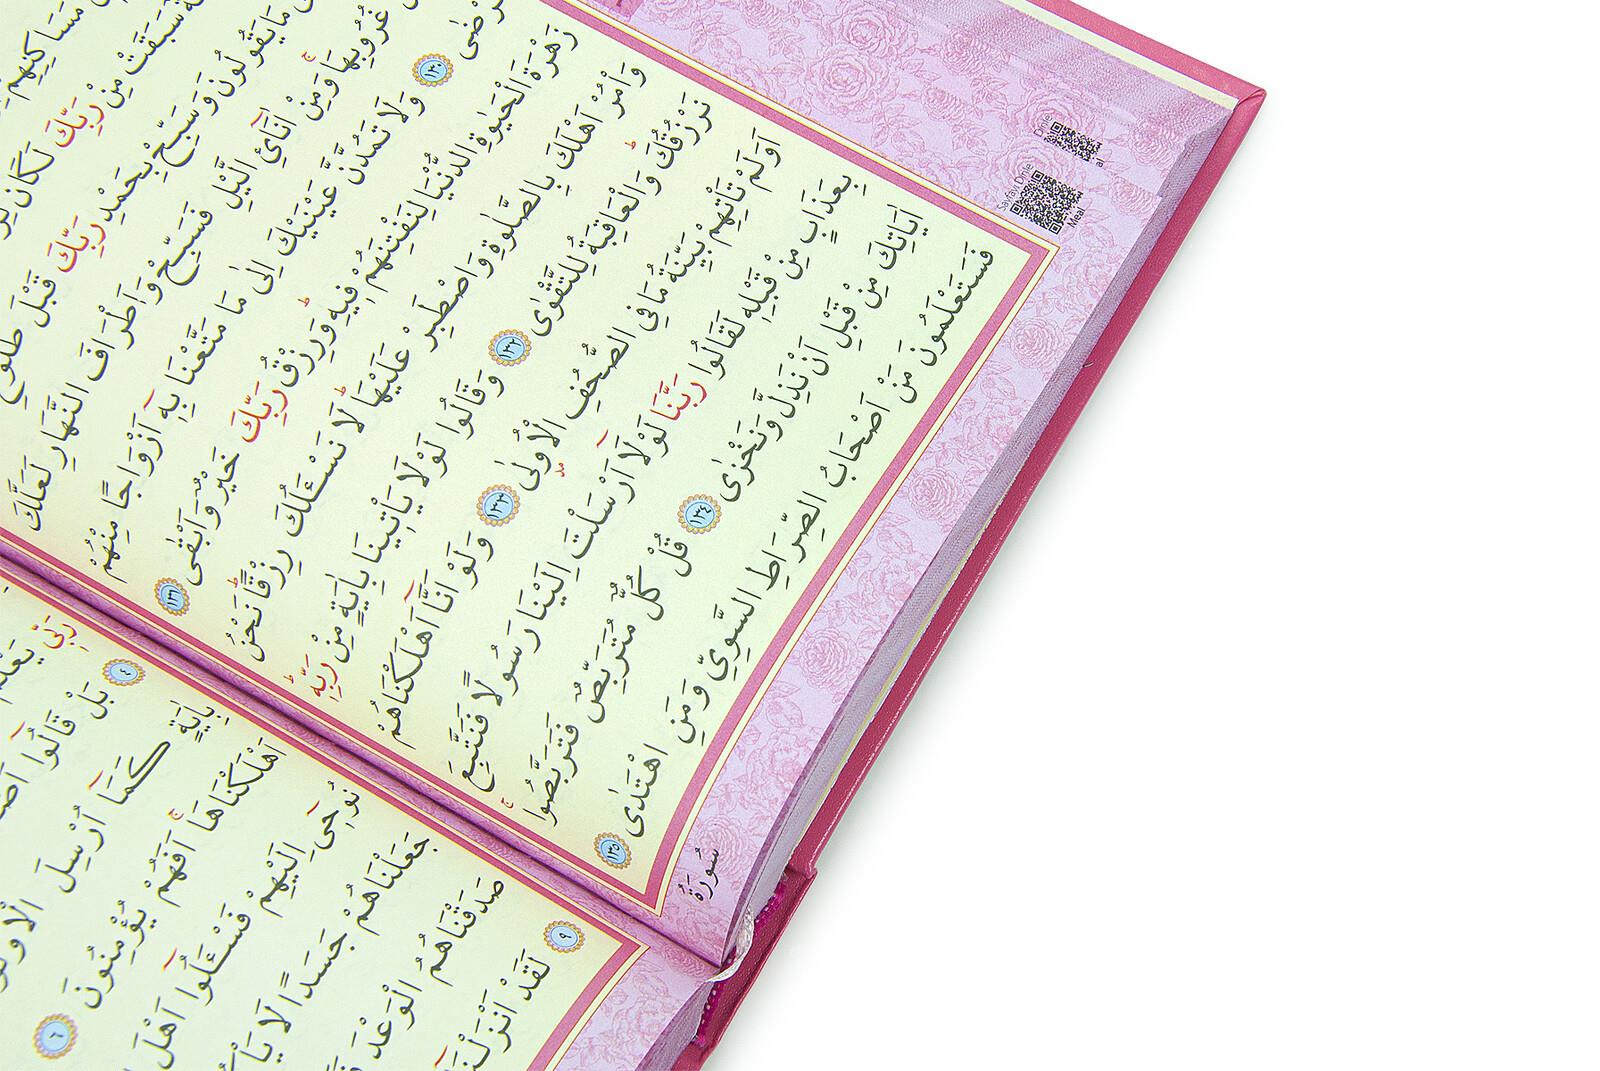 مَسَاكِنِهِمْ
سَبَقَتْ مِنْ رَبِّكَ لَكَانَ
مَا يَقُولُونَ وَسَبِّحْ بِحَمْدِ رَبِّكَ قَبْلَ طُلُوعِ
غُرُوبِهَاۚ وَمِنْ اٰنَٓائِ الَّيْلِ فَسَبِّحْ وَاَطْرَافَ النَّهَارِ لَعَلَّكَ
تَرْضٰى ﴿١٣٠﴾ وَلَا تَمُدَّنَّ عَيْنَيْكَ اِلٰى مَا مَتَّعْنَا بِه۪ٓ اَزْوَاجًا مِنْهُمْ
زَهْرَةَ الْحَيٰوةِ الدُّنْيَا لِنَفْتِنَهُمْ ف۪يهِۜ وَرِزْقُ رَبِّكَ خَيْرٌ وَاَبْقٰى ﴿١٣١﴾
وَأْمُرْ اَهْلَكَ بِالصَّلٰوةِ وَاصْطَبِرْ عَلَيْهَاۜ لَا نَسْـَٔلُكَ رِزْقًاۜ نَحْنُ
نَرْزُقُكَۜ وَالْعَاقِبَةُ لِلتَّقْوٰى ﴿١٣٢﴾ وَقَالُوا لَوْلَا يَأْت۪ينَا بِاٰيَةٍ مِنْ رَبِّه۪ۜ
اَوَلَمْ تَأْتِهِمْ بَيِّنَةُ مَا فِي الصُّحُفِ الْاُو۫لٰى ﴿١٣٣﴾ وَلَوْ اَنَّٓا اَهْلَكْنَاهُمْ
بِعَذَابٍ مِنْ قَبْلِه۪ لَقَالُوا رَبَّنَا لَوْلَٓا اَرْسَلْتَ اِلَيْنَا رَسُولًا فَنَتَّبِعَ
اٰيَاتِكَ مِنْ قَبْلِ اَنْ نَذِلَّ وَنَخْزٰى ﴿١٣٤﴾ قُلْ كُلٌّ مُتَرَبِّصٌ فَتَرَبَّصُواۚ
فَسَتَعْلَمُونَ مَنْ اَصْحَابُ الصِّرَاطِ السَّوِيِّ وَمَنِ اهْتَدٰى ﴿١٣٥﴾
سُورَةُ
Sayfayı Dinle
Meal
Dinle
رَبّ۪ي يَعْلَمُ
﴿٤﴾ بَلْ قَالُٓوا
بِاٰيَةٍ كَمَٓا اُرْسِلَ
اَهْلَكْنَاهَاۚ اَفَهُمْ يُؤْمِنُونَ ﴿٦﴾
نُوح۪ٓي اِلَيْهِمْ فَسْـَٔلُٓوا اَهْلَ
جَعَلْنَاهُمْ جَسَدًا لَا
صَدَقْنَاهُمُ الْوَعْدَ
﴿٩﴾ لَقَدْ اَنْزَلْنَٓا